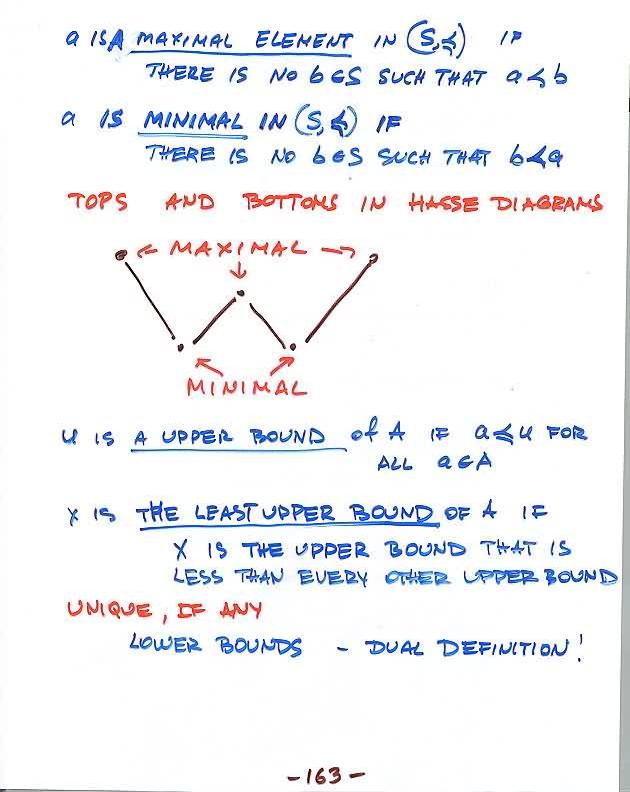 a IS A MAXIMAL ELEMENT IN (S,≼) IF
THERE IS NO b∈S SUCH THAT a≺b
a IS MINIMAL IN (S,≼) IF
THERE IS NO b∈S SUCH THAT b≺a
TOPS AND BOTTOMS IN HASSE DIAGRAMS
← MAXIMAL →
↓
MINIMAL
u IS A UPPER BOUND of A IF a≼u FOR
ALL a∈A
X IS THE LEAST UPPER BOUND OF A IF
X IS THE UPPER BOUND THAT IS
LESS THAN EVERY OTHER UPPER BOUND
UNIQUE, IF ANY
LOWER BOUNDS - DUAL DEFINITION!
-163-